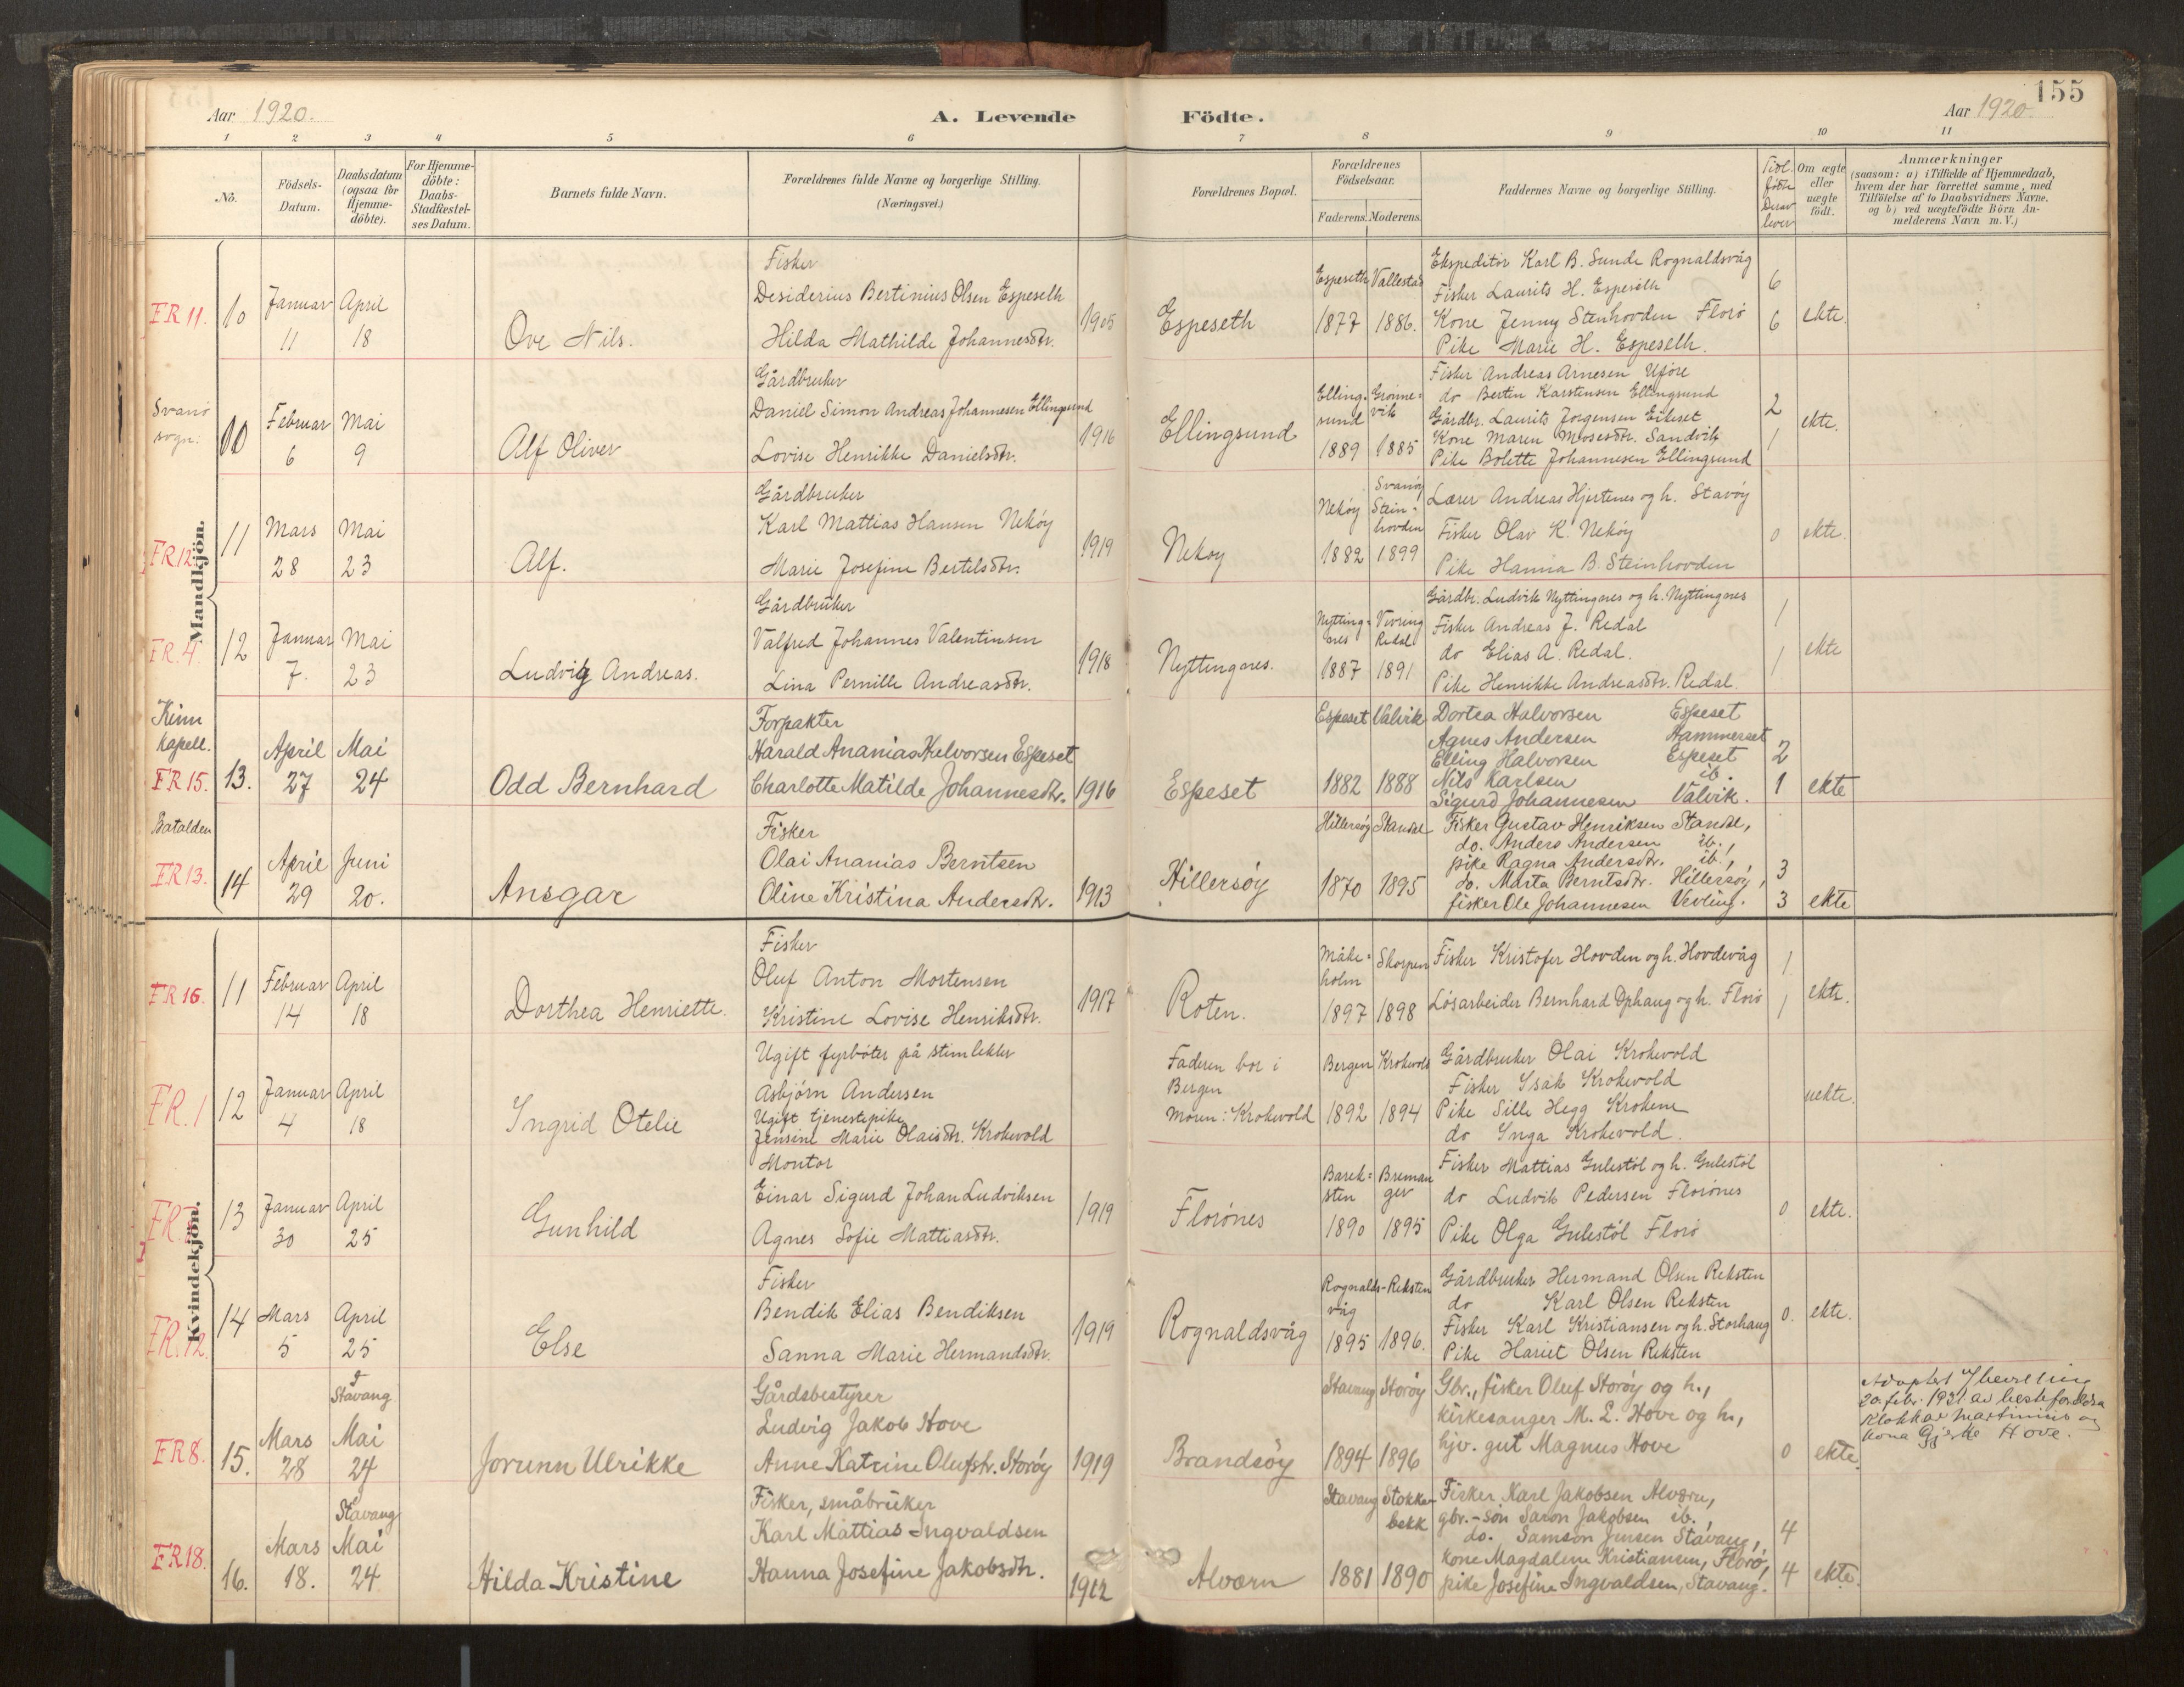 155
Aar 1920.
A. Levende
Födte.
Aar 1920.
1 2 3 4 5 6 7 8 9 10 11
No.
Födsels-Datum.
Daabsdatum (ogsaa för Hjemme-döbte).
For Hjemme-döbte: Daabs-Stadfæstel-ses Datum.
Barnets fulde Navn.
Forældrenes fulde Navne og borgerlige Stilling. (Næringsvei.)
Forældrenes Bopæl.
Forældrenes Födselsaar.
Faderens. Moderens.
Faddernes Navne og borgerlige Stilling.
Tidl. födte Derav lever
Om ægte eller uægte födt.
Anmærkninger
(saasom: a) i Tilfælde af Hjemmedaab,
hvem der har forrettet samme, med
Tilföielse af to Daabsvidners Navne,
og b) ved uægtefödte Börn An-
melderens Navn m. V.)
Mandkjön.
FR 11. 10 Januar 11 April 18
Ove Nils.
Fisker
Desiderius Bertinius Olsen Espeseth
Hilda Mathilde Johannesdtr.
1905
Espeseth
Espeseth 1877 Vallestad 1886.
Ekspeditör Karl B. Sunde Rognaldsvåg
Fisker Laurits H. Espeseth
Kone Jenny Stenhovden Florö
Pike Marie H. Espeseth.
6 6 ekte.
Svanö sogn:
10 Februar 6 Mai 9
Alf Oliver
Gårdbruker
Daniel Simon Andreas Johannesen Ellingsund
Lovise Henrikke Danielsdtr.
1916
Ellingsund
Elling-sund 1889 Grönne-vik 1885
Fisker Andreas Arnesen Uföre
do Bertin Karstensen Ellingsund
Gårdbr. Laurits Jörgensen Eikeset
Kone Maren Mosesdtr. Sandvik
Pike Bolette Johannesen Ellingsund
2 1 ekte.
FR 12. 11 Mars 28 Mai 23
Alf.
Gårdbruker
Karl Mattias Hansen Neköy
Marie Josefine Bertelsdtr.
1919
Nekoy
Neköy 1882 Svanöy Stein-hovden 1899
Lærer Andreas Hjertenes og h. Stavöy
Fisker Olav K. Neköy
Pike Hanna B. Steinhovden
0 ekte.
FR. 4. 12 Januar 7. Mai 23
Ludvig Andreas.
Gårdbruker
Valfred Johannes Valentinsen
Lina Pernille Andreasdtr.
1918
Nyttingnes.
Nytting-nes 1887 Vevring Redal 1891
Gårdbr. Ludvik Nyttingnes og h. Nyttingnes
Fisker Andreas J. Redal
do Elias A. Redal.
Pike Henrikke Andreasdtr. Redal.
1 1 ekte
Kinn kapell.
FR 15. 13. April 27 Mai 24
Odd Bernhard
Forpakter
Harald Ananias Halvorsen Espeset
Charlotte Matilde Johannesdtr.
1916
Espeset
Espeset 1882 Valvik 1888
Dortea Halvorsen Espeset
Agnes Andersen Hammerset
Elling Halvorsen Espeset
Nils Karlsen ib.
Sigurd Johannesen Valvik.
2 1 ekte
Batalden
FR 13. 14 April 29 Juni 20.
Ansgar
Fisker
Olai Ananias Berntsen
Oline Kristina Andersdtr.
1913
Hillersöy
Hillersöy 1870 Standal 1895
Fisker Gustav Henriksen Standal,
do. Anders Andersen ib.,
pike Ragna Andersdtr. ib.,
do. Marta Berntsdtr. Hillersöy,
fisker Ole Johannesen Vevling.
3 3 ekte
Kvindekjön.
FR 16. 11 Februar 14 April 18
Dorthea Henriette.
Fisker
Oluf Anton Mortensen
Kristine Lovise Henriksdtr.
1917
Roten.
Måke-holm 1897 Skorpen 1898
Fisker Kristofer Hovden og h. Hovdevåg
Lösarbeider Bernhard Ophaug og h. Florö
1 1 ekte.
FR. 1 12 Januar 4 April 18
Ingrid Otelie
Ugift fyrböter på stimlekter
Asbjörn Andersen
Ugift tjenestepike
Jensine Marie Olaisdtr. Krokevold
Faderen bor i
Bergen
Moren: Krokevold
Bergen 1892 Krokevold 1894
Gårdbruker Olai Krokevold
Fisker Isak Krokevold
Pike Sille Hegg Krokene
do Inga Krokevold.
uekte.
FR. 13 Januar 30 April 25
Gunhild
Montör
Einar Sigurd Johan Ludviksen
Agnes Sofie Mattiasdtr.
1919
Florönes
Barek-sten 1890 Bremanger 1895
Fisker Mattias Gulestöl og h. Gulestöl
do Ludvik Pedersen Florönes
Pike Olga Gulestöl Florö
0 ekte.
FR. 12. 14 Mars 5 April 25
Else
Fisker
Bendik Elias Bendiksen
Sanna Marie Hermandsdtr.
1919
Rognaldsvåg
Rognalds-våg 1895 Reksten 1896.
Gårdbruker Hermand Olsen Reksten
do Karl Olsen Reksten
Fisker Karl Kristiansen og h. Storhaug
Pike Hariet Olsen Reksten
0. ekte.
FR 8. 15. Mars 28 I Stavang Mai 24
Jorunn Ulrikke
Gårdsbestyrer
Ludvig Jakob Hove
Anne Katrine Olufstr. Storöy
1919
Brandsöy
Stavang 1894 Storöy 1896
Gbr., fisker Oluf Storöy og h.,
kirkesanger M. L. Hove og h.,
hjv. gut Magnus Hove
0 ekte.
20. febr. 1931 av besteforeldra
Klokkar Martinius og
kona Gjertе Hove.
FR 18. 16. Mars 18. Stavang Mai 24
Hilda Kristine
Fisker, småbruker
Karl Mattias Ingvaldsen
Hanna Josefine Jakobsdtr.
1912
Alværn
Stavang 1881 Stokke-bekk 1890
Fisker Karl Jakobsen Alværn,
gbr.-sön Saron Jakobsen ib.,
do. Samson Jensen Stavang,
kone Magdalene Kristiansen, Florö,
pike Josefine Ingvaldsen, Stavang.
4 4 ekte.